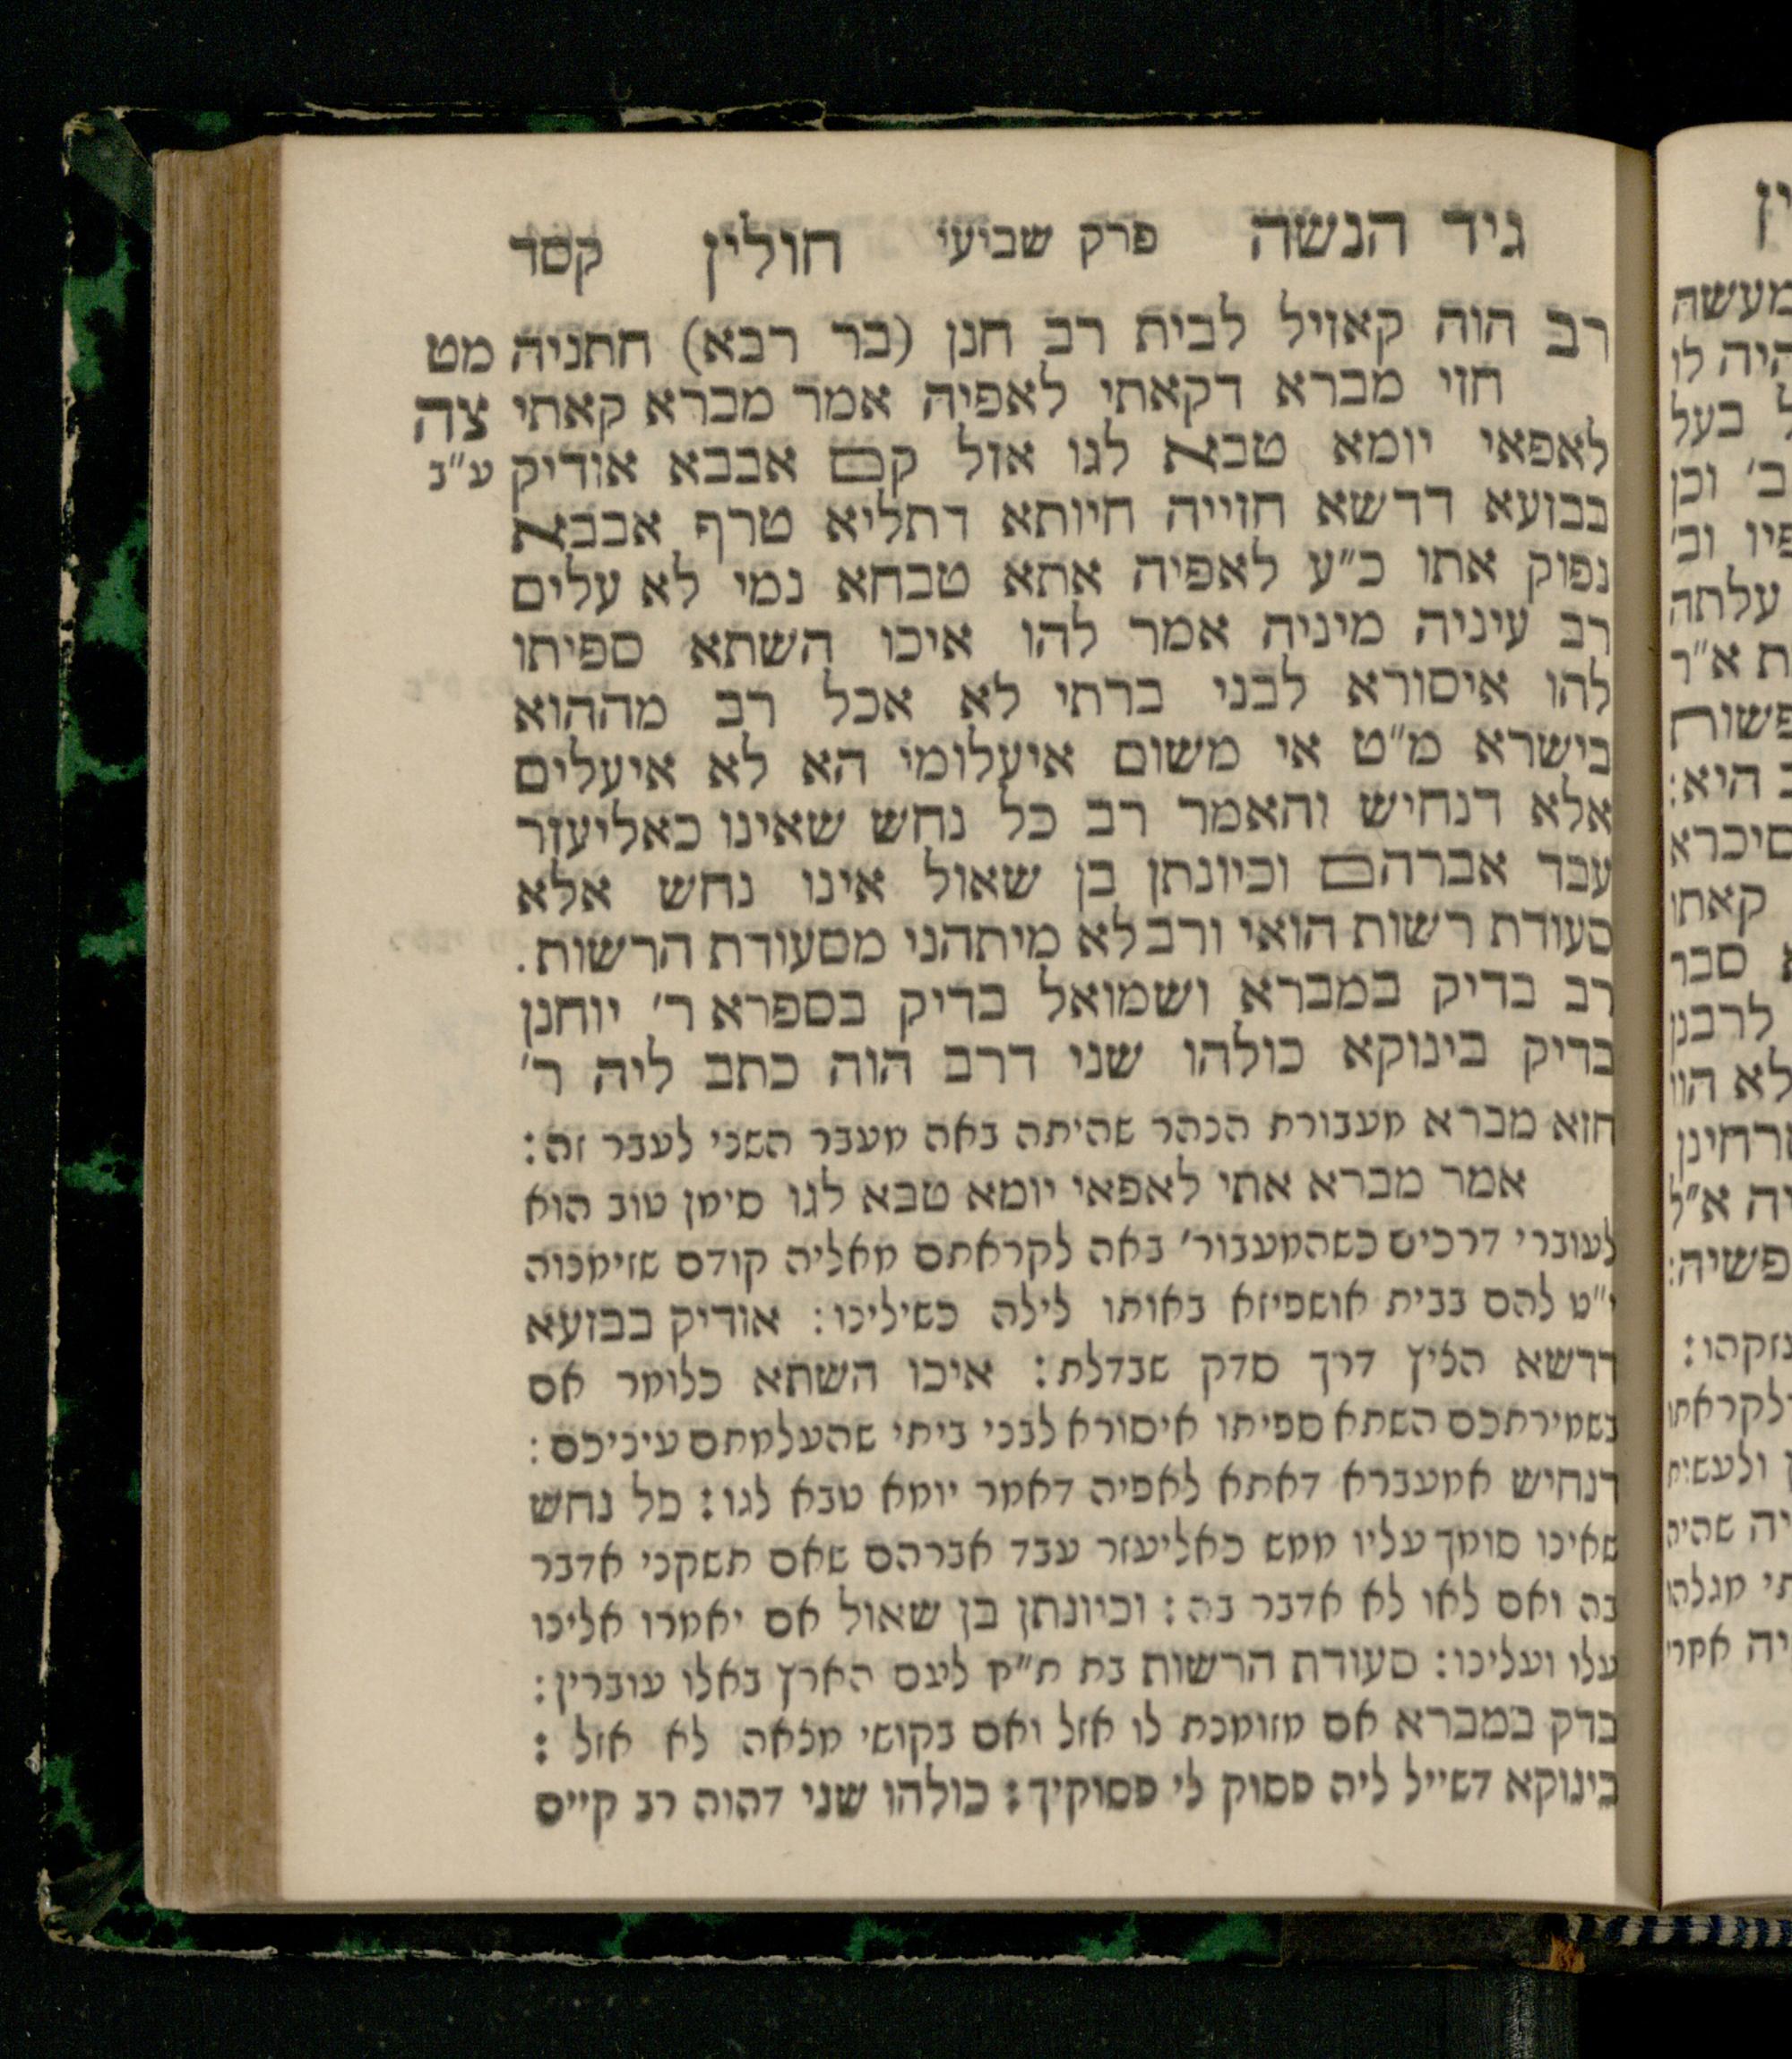 גיד הנשה פרק שביעי חולין קסד
רב הוה קאזיל לבית רב חנן (בר רבא) חתניה מט
חזי מברא דקאתי לאפיה אמר מברא קאתי צה
לאפאי יומא טבא לגו אזל קם אבבא אודיק ע״ב
בבזעא דדשא חזייה חיותא דתליא טרף אבבא
נפוק אתו כ״ע לאפיה אתא טבחא נמי לא עלים
רב עיניה מיניה אמר להו איכו השתא ספיתו
להו איסורא לבני ברתי לא אכל רב מההוא
בישרא מ״ט אי משום איעלומי הא לא איעלים
אלא דנחיש והאמר רב כל נחש שאינו כאליעזר
עבד אברהם וכיונתן בן שאול אינו נחש אלא
סעודת רשות הואי ורב לא מיתהני מסעודת הרשות.
רב בדיק במברא ושמואל בדיק בספרא ר׳ יוחנן
בדיק בינוקא כולהו שני דרב הוה כתב ליה ר׳
חזא מברא מעבורת הנהר שהיתה באה מעבר השני לעבר זה:
אמר מברא אתי לאפאי יומא טבא לגו סימן טוב הוא
לעוברי דרכים כשהמעבור׳ באה לקראתם מאליה קודם שזימנוה
י״ט להם בבית אושפיזא באותו לילה כשילינו: אודיק בבזעא
דדשא הציץ דרך סדק שבדלת: איכו השתא כלומר אם
בשמירתכם השתא ספיתו איסורא לבני ביתי שהעלמתם עיניכם:
דנחיש אמעברא דאתא לאפיה דאמר יומא טבא לגו: כל נחש
שאינו סומך עליו ממש כאליעזר עבד אברהם שאם תשקני אדבר
בה ואם לאו לא אדבר בה: וכיונתן בן שאול אם יאמרו אלינו
עלו ועלינו: סעודת הרשות בת ת״ח לעם הארץ באלו עוברין:
בדק במברא אם מזומנת לו אזל ואם בקושי מצאה לא אזל:
בינוקא דשייל ליה פסוק לי פסוקיך: כולהו שני דהוה רב קיים